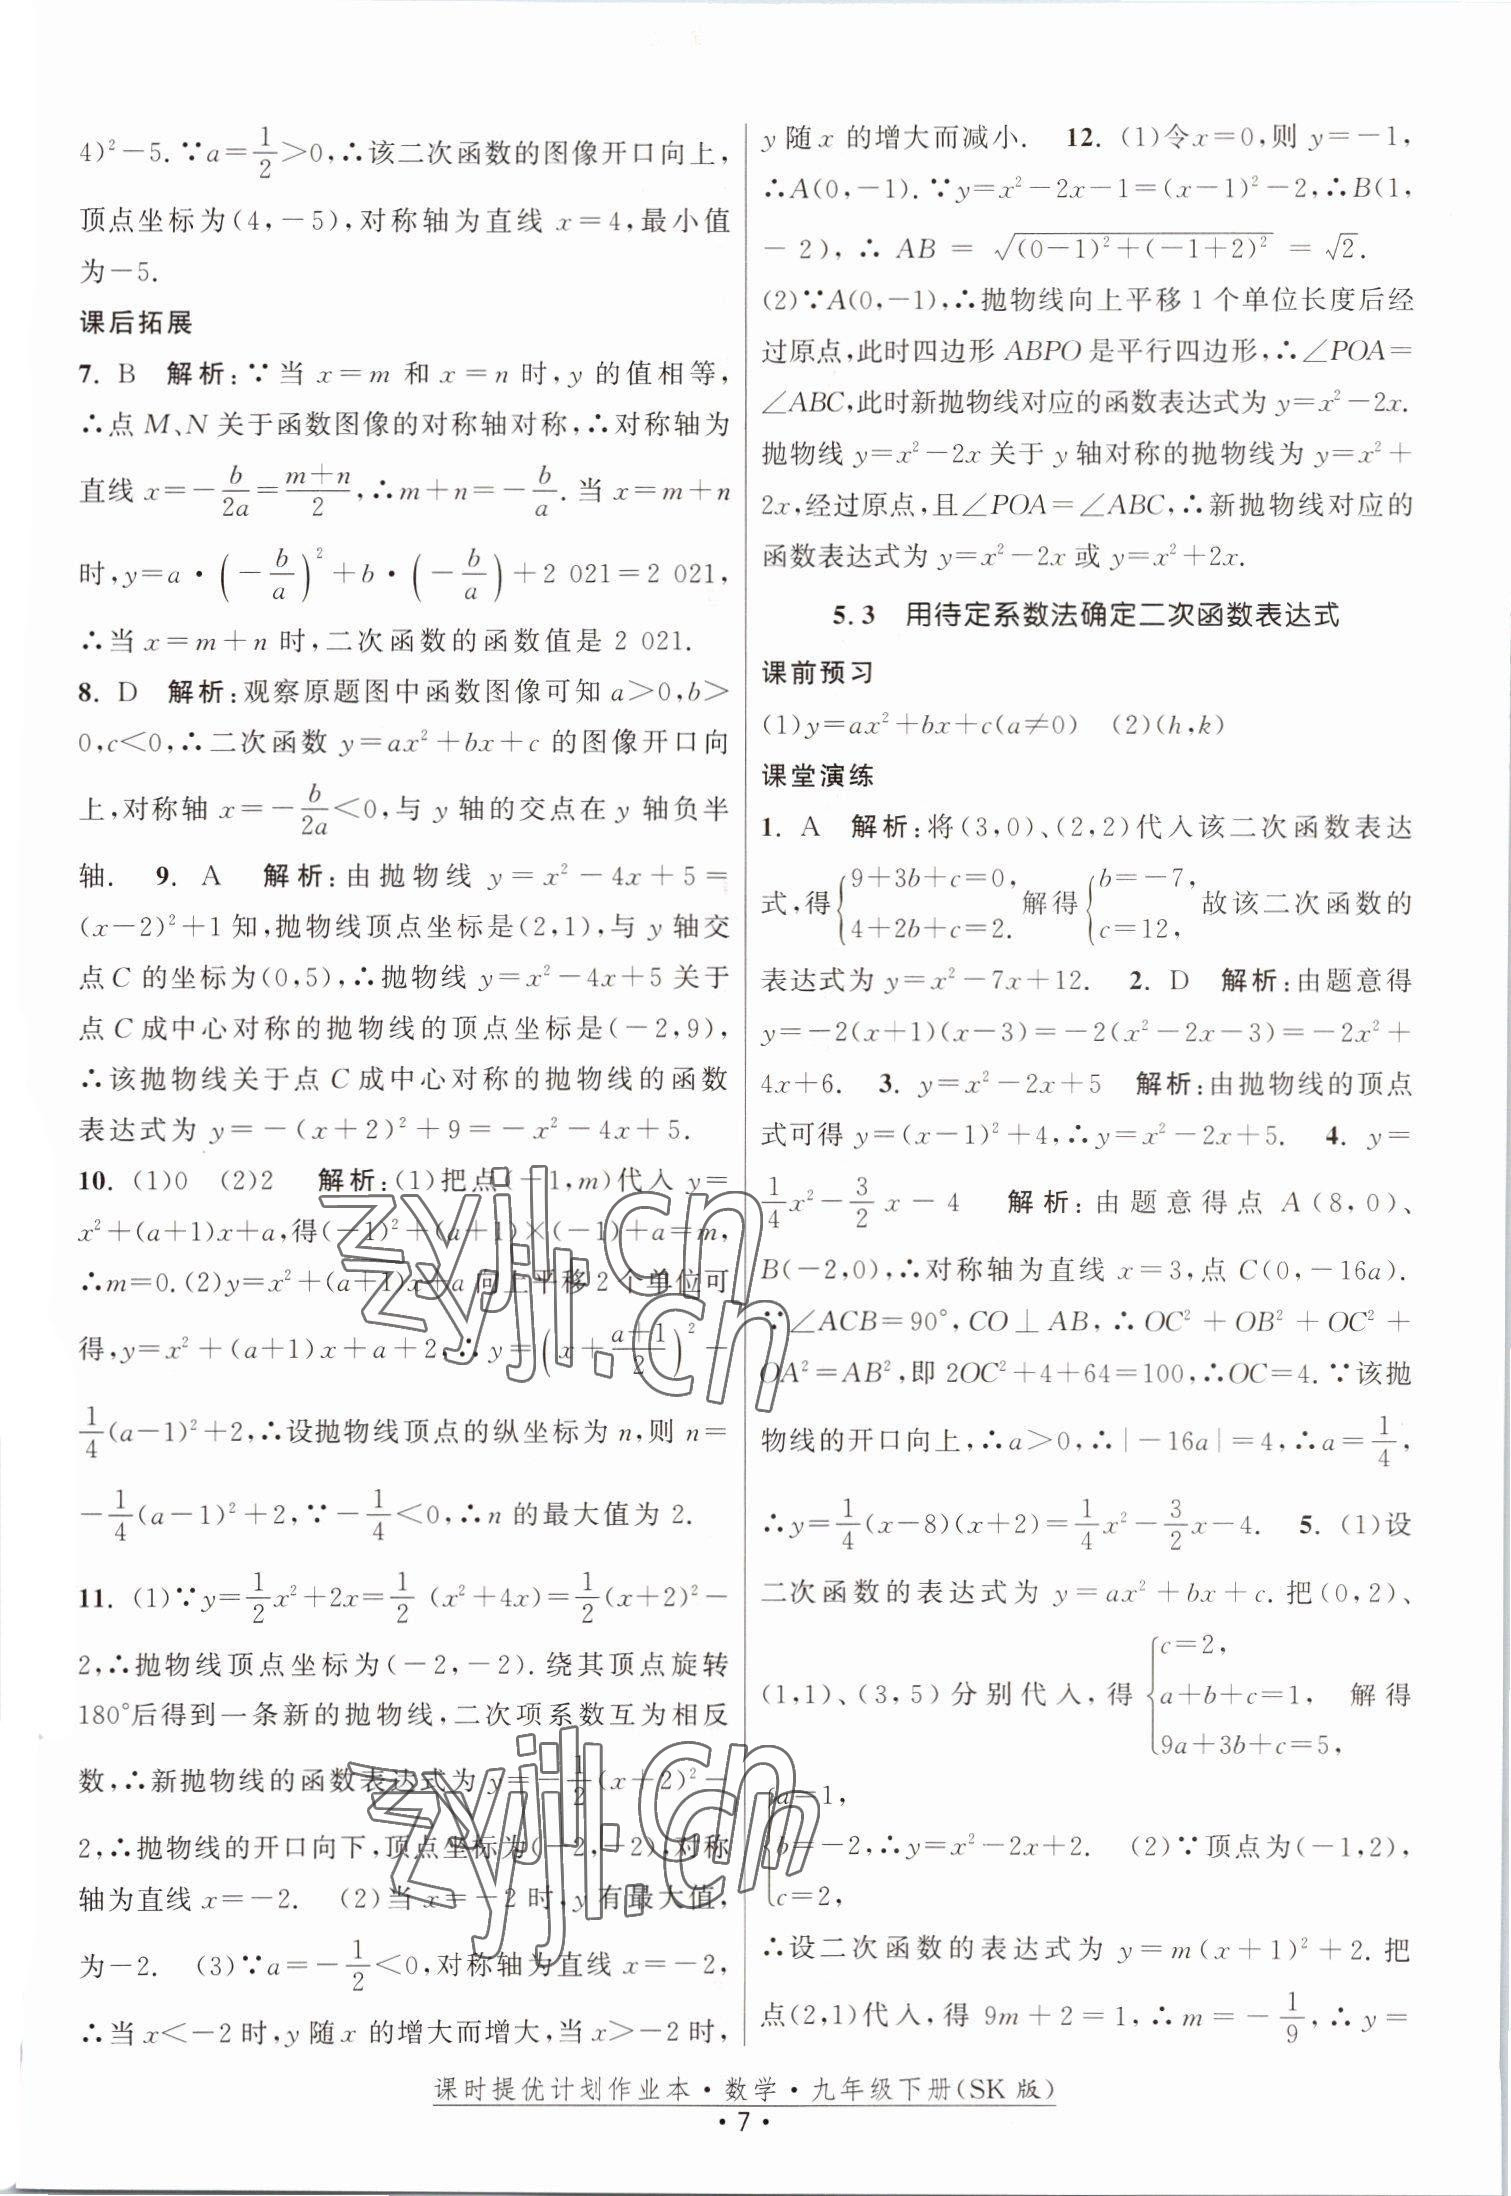 4)²-5.∵a=1/2>0,∴该二次函数的图像开口向上,
顶点坐标为(4,-5),对称轴为直线 x=4,最小值
为-5.
课后拓展
7. B 解析:∵当 x=m 和 x=n 时,y 的值相等,
∴点 M、N 关于函数图像的对称轴对称,∴对称轴为
直线 x=-b/2a=(m+n)/2,∴m+n=-b/a.当 x=m+n
时,y=a·(-b/a)²+b·(-b/a)+2 021=2 021,
∴当 x=m+n 时,二次函数的函数值是 2 021.
8. D 解析:观察原题图中函数图像可知 a>0,b>
0,c<0,∴二次函数 y=ax²+bx+c 的图像开口向
上,对称轴 x=-b/2a<0,与 y 轴的交点在 y 轴负半
轴. 9. A 解析:由抛物线 y=x²-4x+5=
(x-2)²+1 知,抛物线顶点坐标是(2,1),与 y 轴交
点 C 的坐标为(0,5),∴抛物线 y=x²-4x+5 关于
点 C 成中心对称的抛物线的顶点坐标是(-2,9),
∴该抛物线关于点 C 成中心对称的抛物线的函数
表达式为 y=-(x+2)²+9=-x²-4x+5.
10. (1)0 (2)2 解析:(1)把点(-1,m)代入 y=
x²+(a+1)x+a,得(-1)²+(a+1)×(-1)+a=m,
∴m=0.(2)y=x²+(a+1)x+a 向上平移 2 个单位可
得,y=x²+(a+1)x+a+2,∴y=(x+(a+1)/2)²-
1/4(a-1)²+2,∴设抛物线顶点的纵坐标为 n,则 n=
-1/4(a-1)²+2,∵-1/4<0,∴n 的最大值为 2.
11. (1)∵y=1/2x²+2x=1/2(x²+4x)=1/2(x+2)²-
2,∴抛物线顶点坐标为(-2,-2).绕其顶点旋转
180°后得到一条新的抛物线,二次项系数互为相反
数,∴新抛物线的函数表达式为 y=-1/2(x+2)²-
2,∴抛物线的开口向下,顶点坐标为(-2,-2),对称
轴为直线 x=-2. (2)当 x=-2 时,y 有最大值,
为-2. (3)∵a=-1/2<0,对称轴为直线 x=-2,
∴当 x<-2 时,y 随 x 的增大而增大,当 x>-2 时,
y 随 x 的增大而减小. 12. (1)令 x=0,则 y=-1,
∴A(0,-1).∵y=x²-2x-1=(x-1)²-2,∴B(1,
-2),∴AB=√((0-1)²+(-1+2)²)=√2.
(2)∵A(0,-1),∴抛物线向上平移 1 个单位长度后经
过原点,此时四边形 ABPO 是平行四边形,∴∠POA=
∠ABC,此时新抛物线对应的函数表达式为 y=x²-2x.
抛物线 y=x²-2x 关于 y 轴对称的抛物线为 y=x²+
2x,经过原点,且∠POA=∠ABC,∴新抛物线对应的
函数表达式为 y=x²-2x 或 y=x²+2x.
5.3 用待定系数法确定二次函数表达式
课前预习
(1)y=ax²+bx+c(a≠0) (2)(h,k)
课堂演练
1. A 解析:将(3,0)、(2,2)代入该二次函数表达
式,得{9+3b+c=0, 4+2b+c=2. 解得{b=-7, c=12, 故该二次函数的
表达式为 y=x²-7x+12. 2. D 解析:由题意得
y=-2(x+1)(x-3)=-2(x²-2x-3)=-2x²+
4x+6. 3. y=x²-2x+5 解析:由抛物线的顶点
式可得 y=(x-1)²+4,∴y=x²-2x+5. 4. y=
1/4x²-3/2x-4 解析:由题意得点 A(8,0)、
B(-2,0),∴对称轴为直线 x=3,点 C(0,-16a).
∵∠ACB=90°,CO⊥AB,∴OC²+OB²+OC²+
OA²=AB²,即 2OC²+4+64=100,∴OC=4.∵该抛
物线的开口向上,∴a>0,∴|-16a|=4,∴a=1/4,
∴y=1/4(x-8)(x+2)=1/4x²-3/2x-4. 5. (1)设
二次函数的表达式为 y=ax²+bx+c.把(0,2)、
(1,1)、(3,5)分别代入,得{c=2, a+b+c=1, 9a+3b+c=5, 解得
{a=1, b=-2, c=2, ∴y=x²-2x+2. (2)∵顶点为(-1,2),
∴设二次函数的表达式为 y=m(x+1)²+2.把
点(2,1)代入,得 9m+2=1,∴m=-1/9,∴y=
课时提优计划作业本·数学·九年级下册(SK版)
·7·
zyjl.cn
zyjl.cn